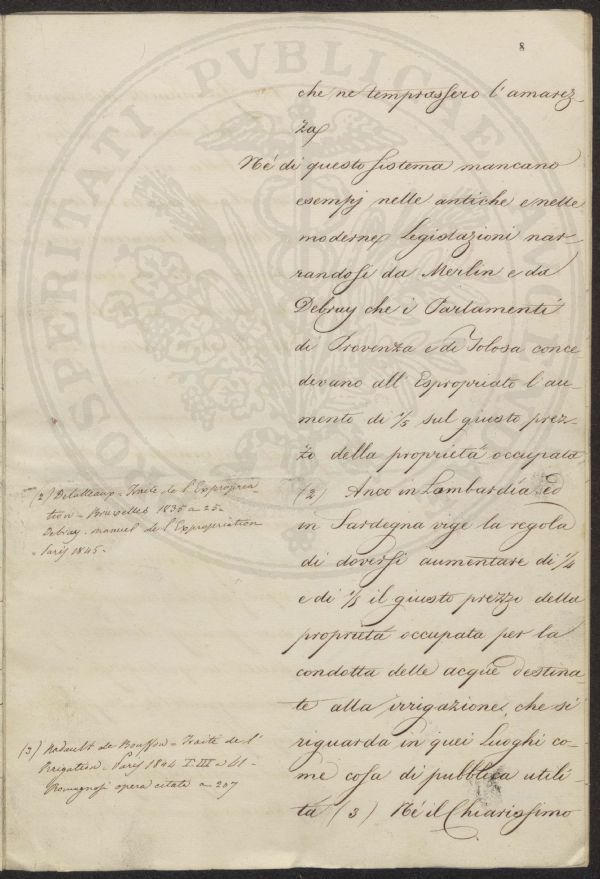 8
che ne temprassero l'amarez-
za
Nè di questo sistema mancano
esempj nelle antiche e nelle
moderne Legislazioni nar-
randosi da Merlin e da
Debray che i Parlamenti
di Provenza e di Tolosa conce
devano all'Espropriato l'au-
mento di 1/5 sul giusto prez-
zo della proprietà occupata
(2) Anco in Lombardia ed
in Sardegna vige la regola
di doversi aumentare di 1/4
e di 1/5 il giusto prezzo della
proprietà occupata per la
condotta delle acque destina-
te alla irrigazione, che si
riguarda in quei Luoghi co-
me cosa di pubblica utili-
tà (3) Nè il Chiarissimo
(2) Delalleaux = Traité de l'Expropria-
tion = Bruxelles 1835 a 25=
Debray = manuel de l'Expropriation
= Paris 1845 =
(3) Nadault de Bouffon = Traité de l'
Irrigation = Paris 1844 T. III a 41 =
Romagnosi opera citata a 207
PROSPERITATI PVBLICAE